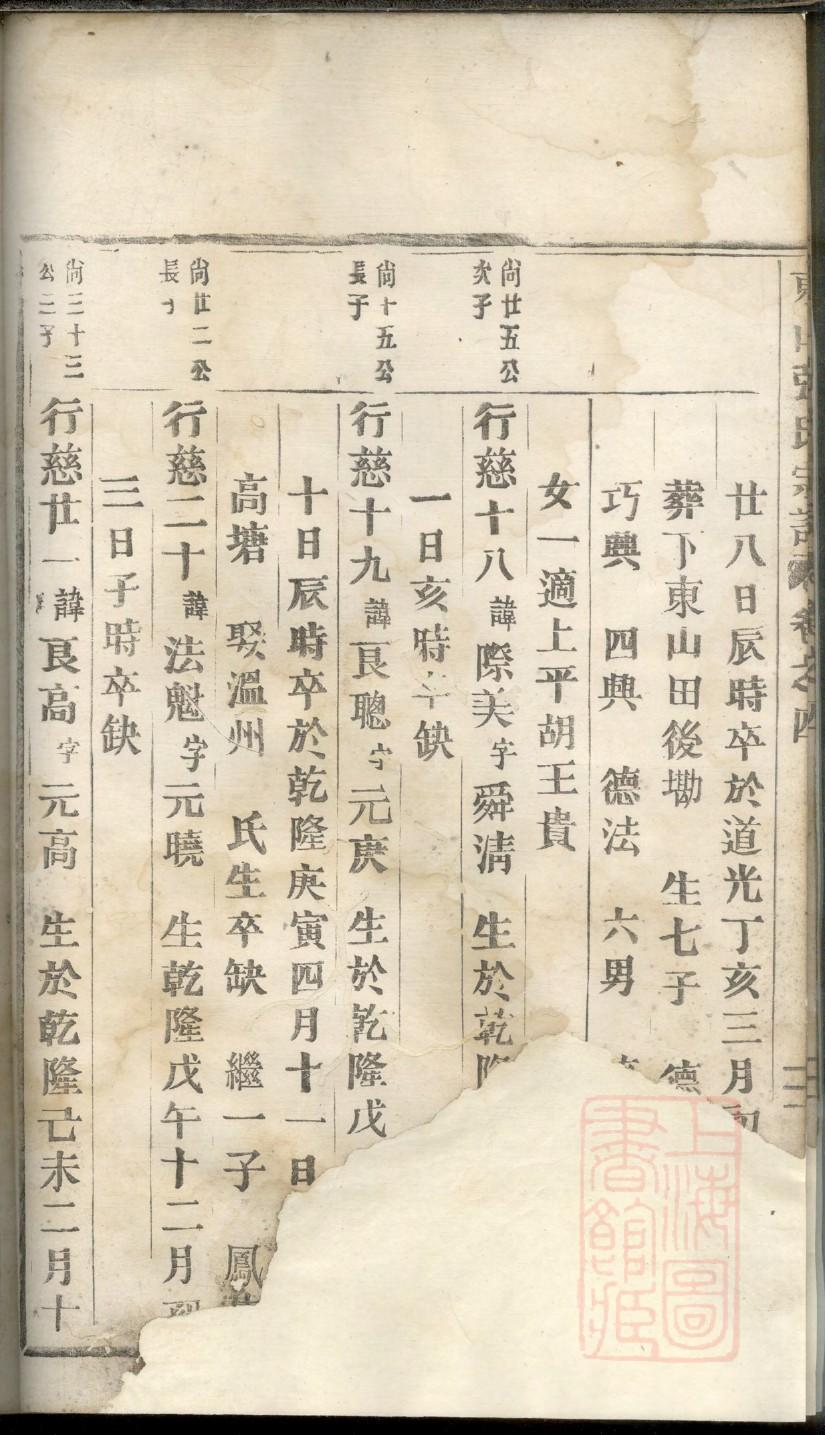 廿八日辰時卒於道光丁亥三月初
葬下東山田後墈 生七子 德
巧興 四興 德法 六男
女一適上平胡王貴
尙廿五公
次子
行慈十八諱際美字舜清 生於乾隆
一日亥時卒缺
尙十五公
長子
行慈十九諱良聰字元庚 生於乾隆戊
十日辰時卒於乾隆庚寅四月十一日
高塘 娶溫州 氏生卒缺 繼一子 鳳
尙廿二公
長子
行慈二十諱法魁字元曉 生乾隆戊午十二月
三日子時卒缺
尙三十三
公三子
行慈廿一諱良高字元高 生於乾隆己未二月十
上海圖書館藏